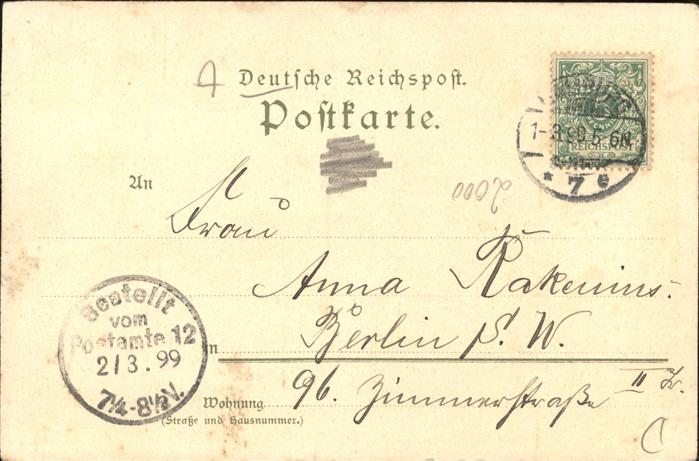 Deutsche Reichspost.
Postkarte.
REICHSPOST
* 7 e
2000
An
Frau
Anna Rakenius.
Berlin S. W.
in
96. Zimmerstraße II Tr.
Wohnung
(Straße und Hausnummer.)
Bestellt
vom
Postamte 12
2/3.99
7¼-8½V.